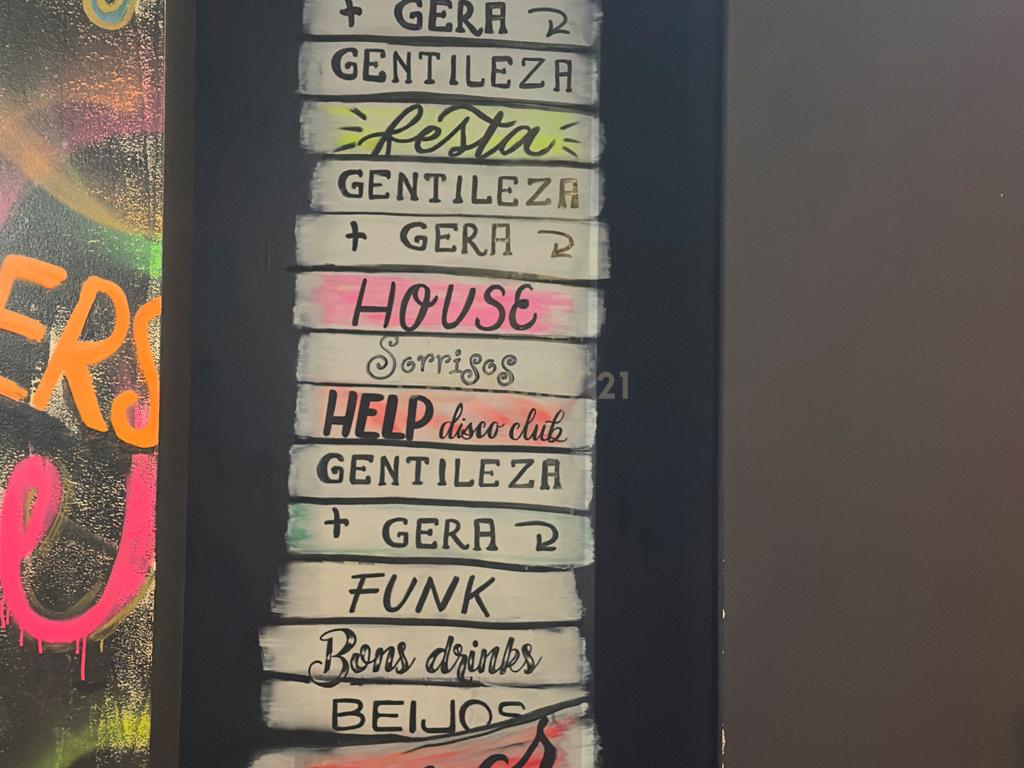 + GERA
GENTILEZA
festa
GENTILEZA
+ GERA
HOUSE
Sorrisos
HELP disco club
GENTILEZA
+ GERA
FUNK
Bons drinks
BEIJOS
ERS
21